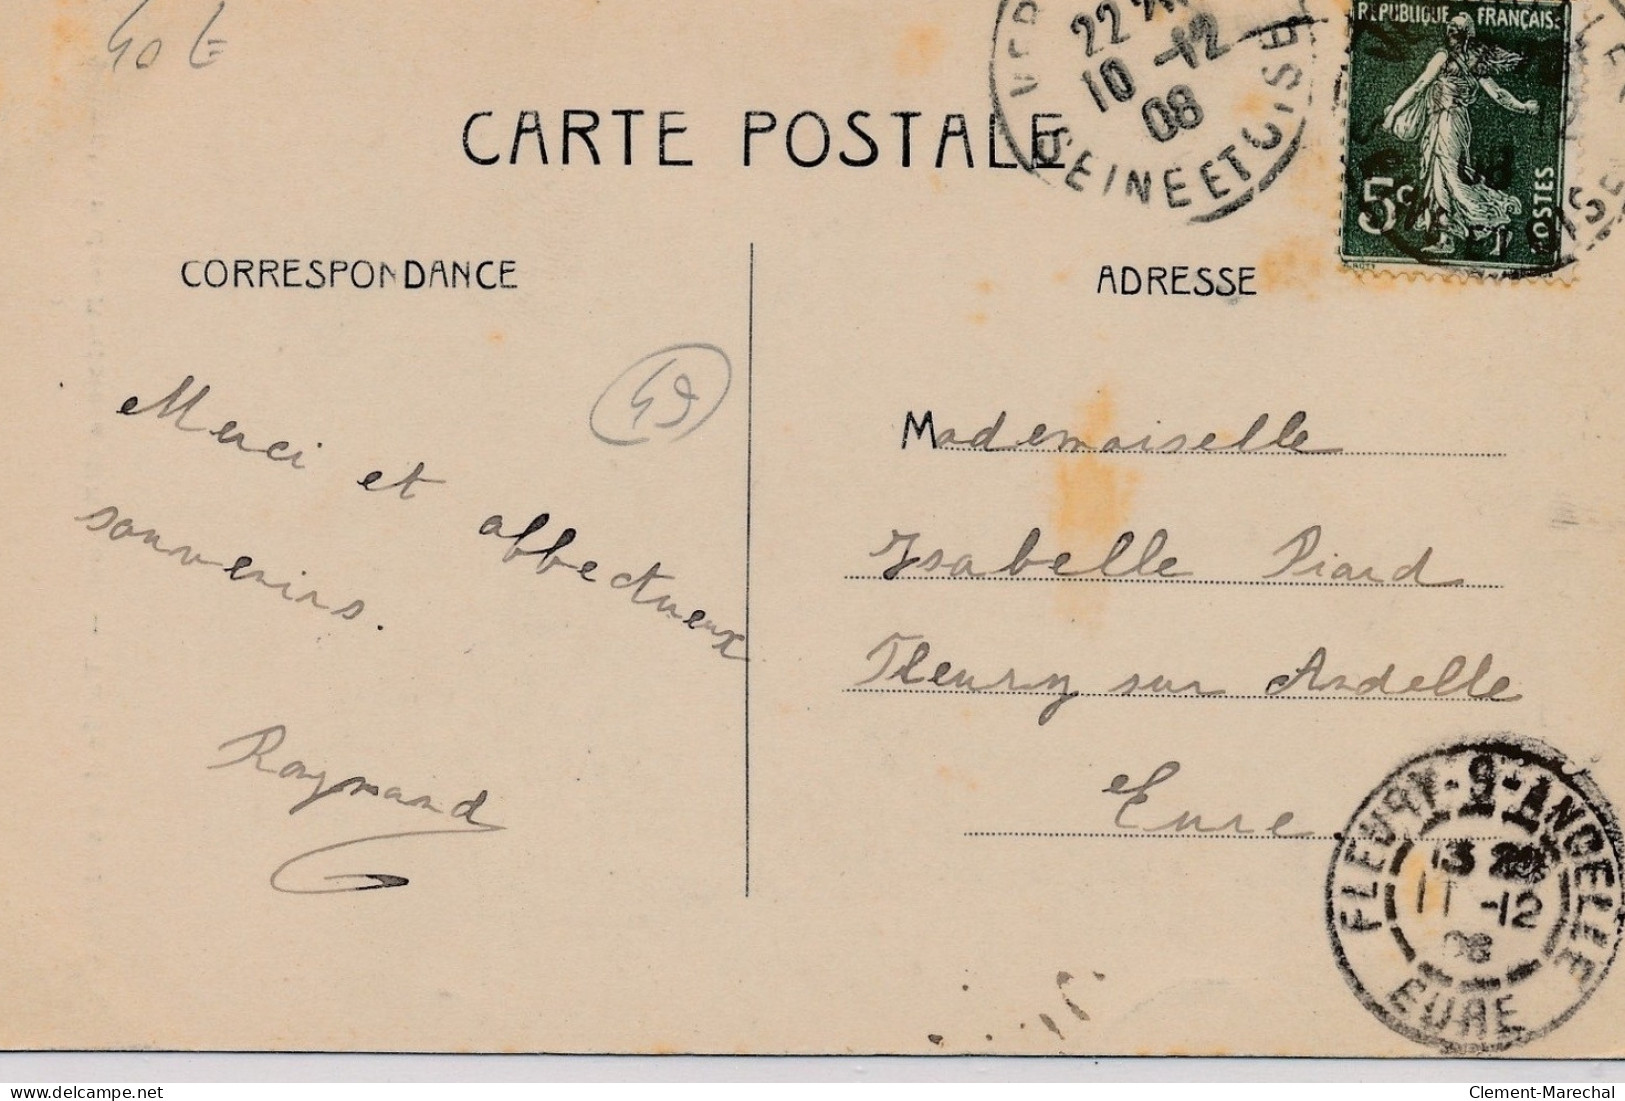 40 E
22
10 -12
08
SEINE ET OISE
REPUBLIQUE FRANÇAISE
5c
POSTES
CARTE POSTALE
CORRESPONDANCE
ADRESSE
49
Merci et affectueux
souvenirs.
Raymond
Mademoiselle
Isabelle Piard
Fleury sur Andelle
Eure
FLEURY-S-ANDELLE
13
11 -12
08
EURE
www.delcampe.net
Clement-Marechal